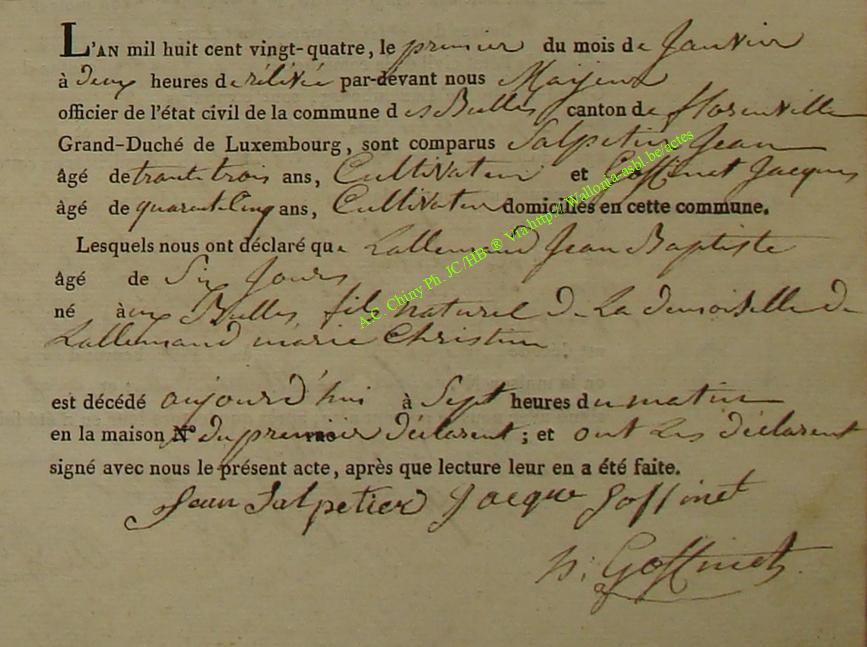 L'AN mil huit cent vingt-quatre, le premier du mois de Janvier
à deux heures de rélivée par-devant nous Maÿeur
officier de l'état civil de la commune des Bulles canton de florenville
Grand-Duché de Luxembourg, sont comparus Salpetier Jean
âgé de trante trois ans, Cultivateur et Goffinet Jacques
âgé de quarent Cinq ans, Cultivateur domiciliés en cette commune.
Lesquels nous ont déclaré que Lallemand Jean Baptiste
âgé de Six Jours
né aux Bulles fils naturel de La demoiselle de
Lallemand marie Christine
est décédé aujourd'hui à Sept heures du matin
en la maison N° du premier déclarent ; et ont Les déclarent
signé avec nous le présent acte, après que lecture leur en a été faite.
Jean Salpetier Jacque Goffinet
Goffinet
A.E. Chiny Ph. JC /HB ® Via http://Wallonia-asbl.be/actes